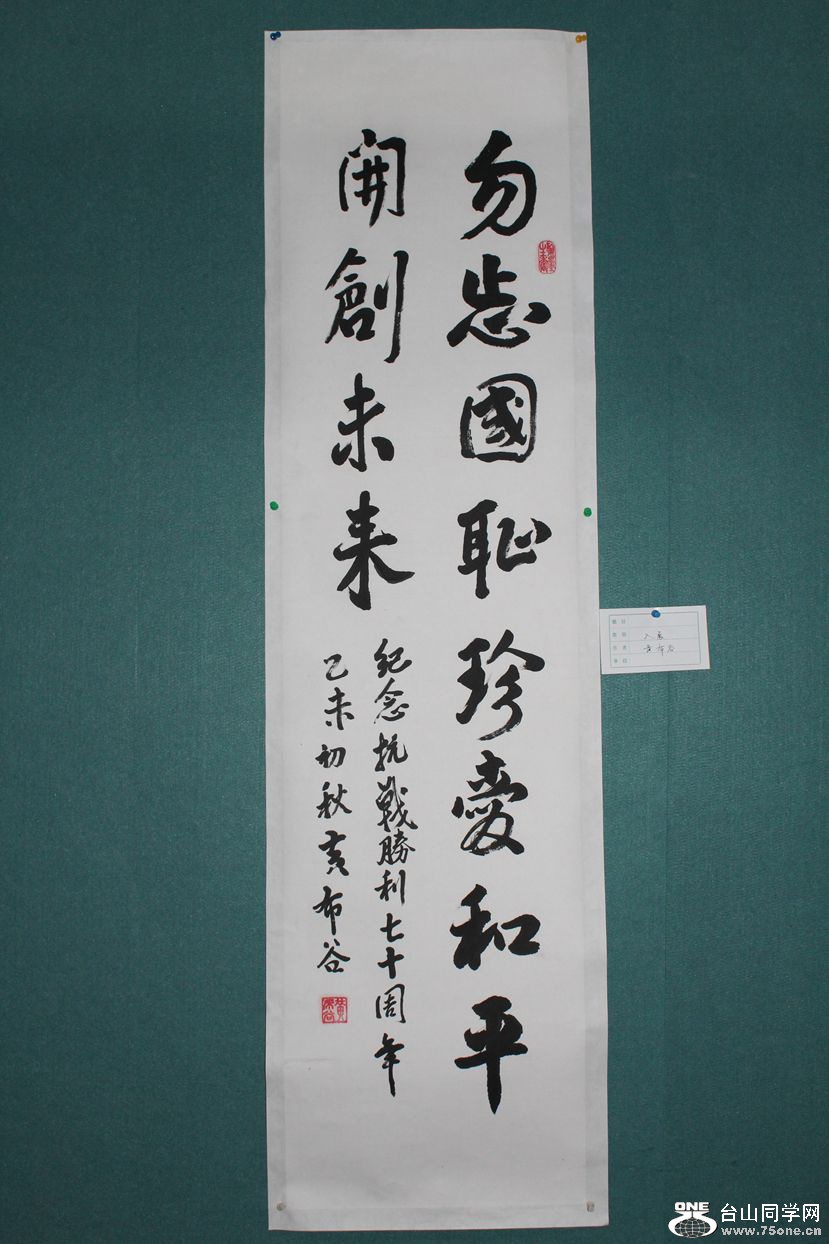 勿忘國恥珍愛和平
開創未来
紀念抗戰勝利七十周年
乙未初秋黄布谷
入展
黄布谷
ONE
台山同学网
www.75one.cn